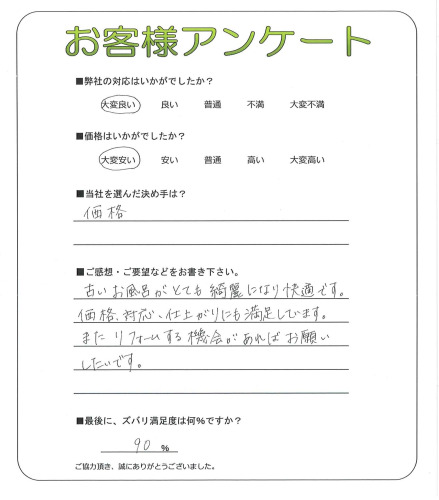 お客様アンケート
■弊社の対応はいかがでしたか？
大変良い 良い 普通 不満 大変不満
■価格はいかがでしたか？
大変安い 安い 普通 高い 大変高い
■当社を選んだ決め手は？
価格
■ご感想・ご要望などをお書き下さい。
古いお風呂がとても綺麗になり快適です。
価格、対応、仕上がりにも満足しています。
またリフォームする機会があればお願い
したいです。
■最後に、ズバリ満足度は何％ですか？
90 ％
ご協力頂き、誠にありがとうございました。